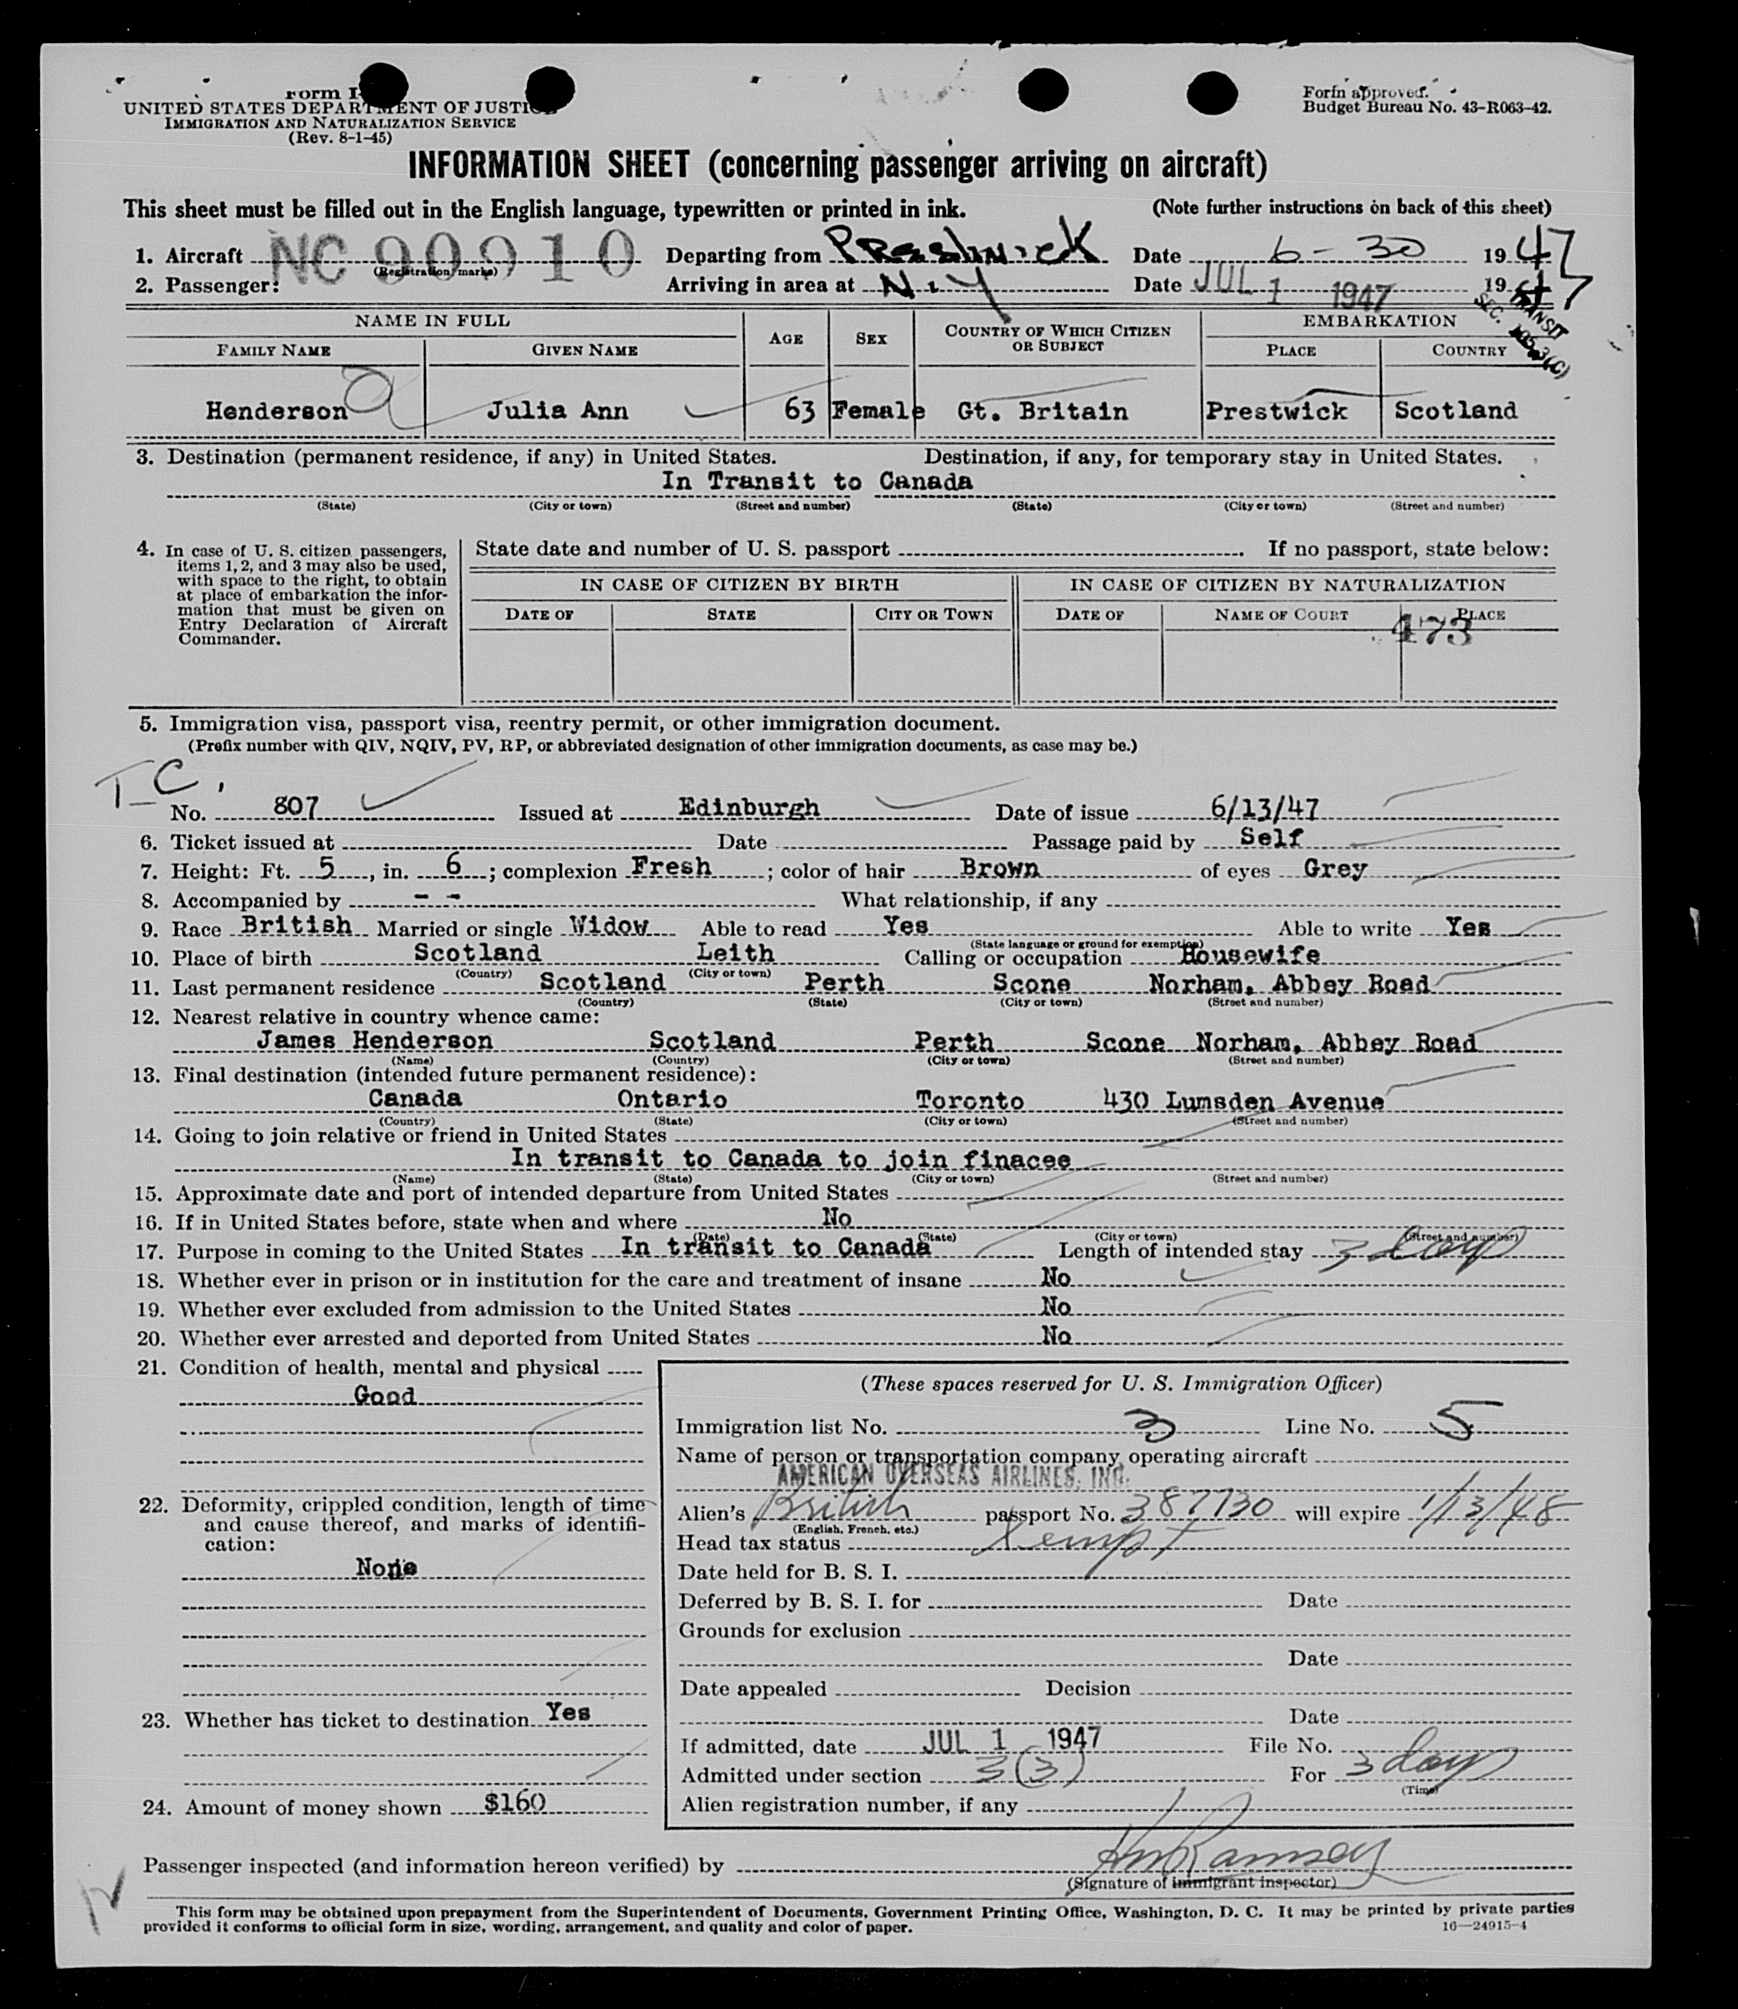 Form I-
UNITED STATES DEPARTMENT OF JUSTICE
IMMIGRATION AND NATURALIZATION SERVICE
(Rev. 8-1-45)
Form approved.
Budget Bureau No. 43-R063-42.
INFORMATION SHEET (concerning passenger arriving on aircraft)
This sheet must be filled out in the English language, typewritten or printed in ink. (Note further instructions on back of this sheet)
1. Aircraft NC 90910 Departing from Prestwick Date 6-30 1947
(Registration marks)
2. Passenger: Arriving in area at N.Y Date JUL 1 1947 1947
TRANSIT
SEC. 105.3(C)
NAME IN FULL AGE SEX COUNTRY OF WHICH CITIZEN OR SUBJECT EMBARKATION
FAMILY NAME GIVEN NAME PLACE COUNTRY
Henderson Julia Ann 63 Female Gt. Britain Prestwick Scotland
3. Destination (permanent residence, if any) in United States. Destination, if any, for temporary stay in United States.
In Transit to Canada
(State) (City or town) (Street and number) (State) (City or town) (Street and number)
4. In case of U. S. citizen passengers,
items 1, 2, and 3 may also be used,
with space to the right, to obtain
at place of embarkation the infor-
mation that must be given on
Entry Declaration of Aircraft
Commander.
State date and number of U. S. passport . If no passport, state below:
IN CASE OF CITIZEN BY BIRTH IN CASE OF CITIZEN BY NATURALIZATION
DATE OF STATE CITY OR TOWN DATE OF NAME OF COURT PLACE
473
5. Immigration visa, passport visa, reentry permit, or other immigration document.
(Prefix number with QIV, NQIV, PV, RP, or abbreviated designation of other immigration documents, as case may be.)
T-C.
No. 807 Issued at Edinburgh Date of issue 6/13/47
6. Ticket issued at Date Passage paid by Self
7. Height: Ft. 5, in. 6; complexion Fresh; color of hair Brown of eyes Grey
8. Accompanied by - - What relationship, if any
9. Race British Married or single Widow Able to read Yes Able to write Yes
(State language or ground for exemption)
10. Place of birth Scotland Leith Calling or occupation Housewife
(Country) (City or town)
11. Last permanent residence Scotland Perth Scone Norham, Abbey Road
(Country) (State) (City or town) (Street and number)
12. Nearest relative in country whence came:
James Henderson Scotland Perth Scone Norham, Abbey Road
(Name) (Country) (City or town) (Street and number)
13. Final destination (intended future permanent residence):
Canada Ontario Toronto 430 Lumsden Avenue
(Country) (State) (City or town) (Street and number)
14. Going to join relative or friend in United States
In transit to Canada to join finacee
(Name) (State) (City or town) (Street and number)
15. Approximate date and port of intended departure from United States
16. If in United States before, state when and where No
(Date) (State) (City or town) (Street and number)
17. Purpose in coming to the United States In transit to Canada Length of intended stay 3 days
18. Whether ever in prison or in institution for the care and treatment of insane No
19. Whether ever excluded from admission to the United States No
20. Whether ever arrested and deported from United States No
21. Condition of health, mental and physical
Good
22. Deformity, crippled condition, length of time
and cause thereof, and marks of identifi-
cation:
None
23. Whether has ticket to destination Yes
24. Amount of money shown $160
(These spaces reserved for U. S. Immigration Officer)
Immigration list No. 3 Line No. 5
Name of person or transportation company operating aircraft
AMERICAN OVERSEAS AIRLINES, INC.
Alien's British passport No. 387730 will expire 1/13/48
(English, French, etc.)
Head tax status Xempt
Date held for B. S. I.
Deferred by B. S. I. for Date
Grounds for exclusion
Date
Date appealed Decision
Date
If admitted, date JUL 1 1947 File No.
Admitted under section 3(3) For 3 days
(Time)
Alien registration number, if any
Passenger inspected (and information hereon verified) by Ramsay
(Signature of immigrant inspector)
This form may be obtained upon prepayment from the Superintendent of Documents, Government Printing Office, Washington, D. C. It may be printed by private parties
provided it conforms to official form in size, wording, arrangement, and quality and color of paper. 16—24915-4